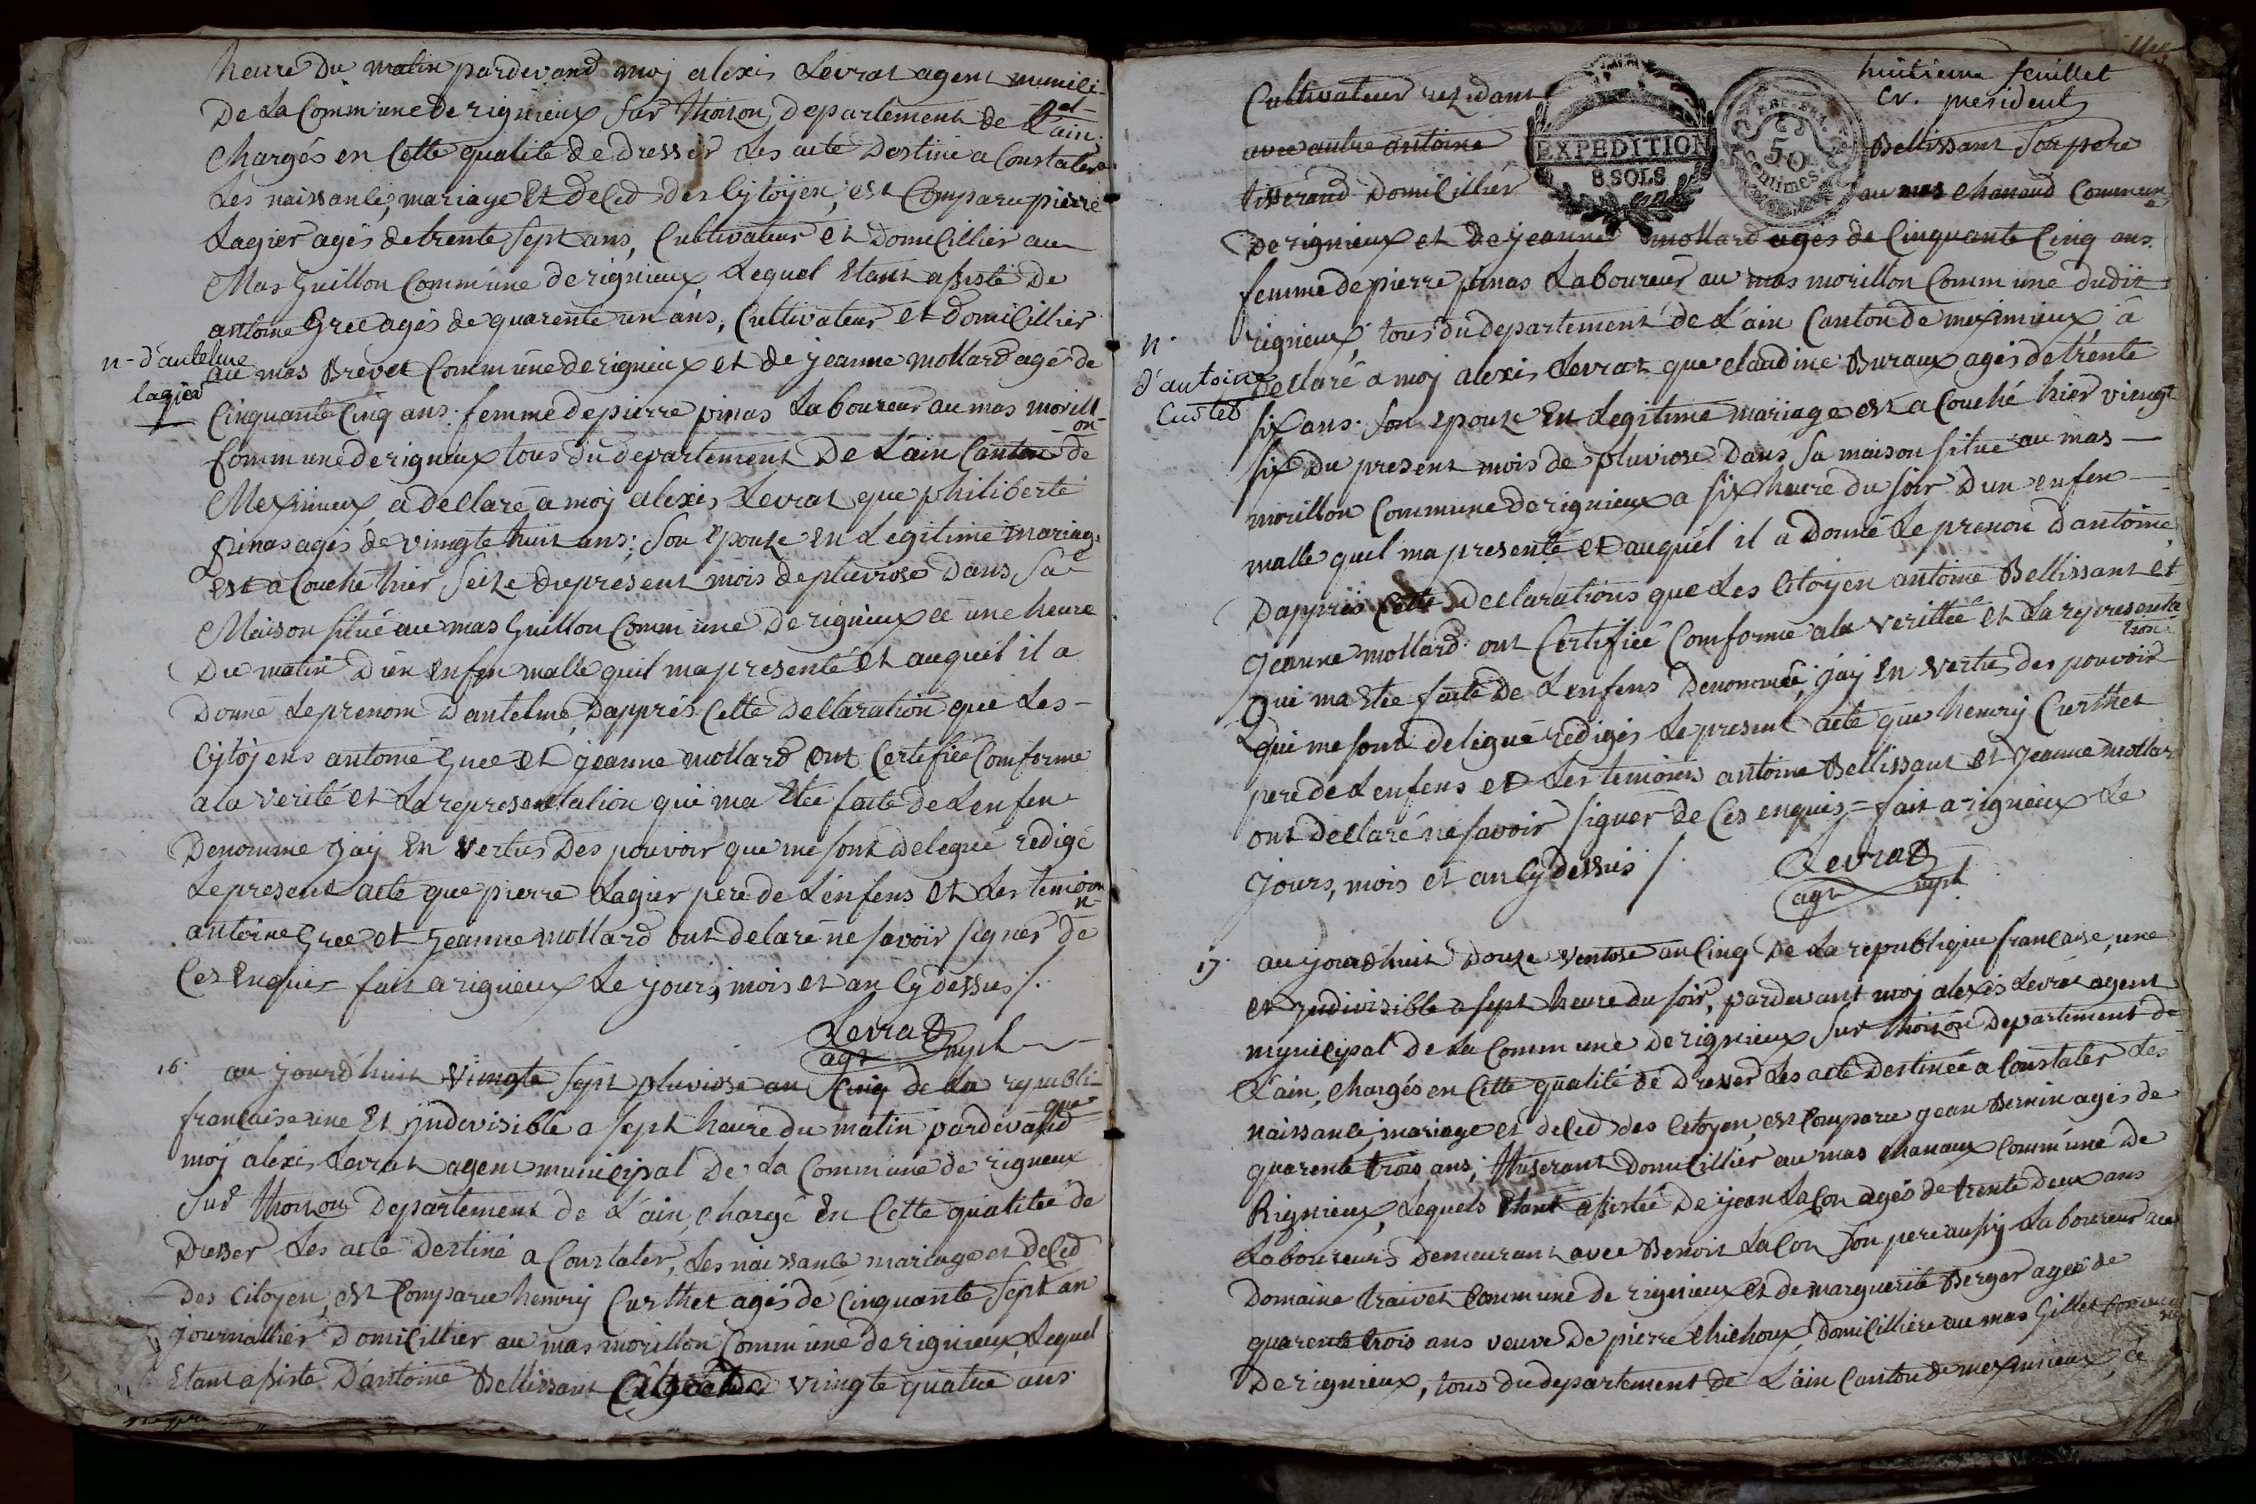 heure du matin pardevand moj alexis Levrat agent munici-
pal
De La Commune de rignieux Sur thoison, departement de L'ain
Chargés en Cette qualité de dresser Les acte Destiné a Constater
Les naissance, mariage Et deced des Cytoÿen, est Comparu pierre
Lagier agés de trente sept ans, Cultivateur et Domicillier au
Mas Guillon Commune de rignieux, Lequel Etant assisté de
antoine Gree agés de quarente un ans, Cultivateur et domicillier
n- d'antelme
lagier
au mas Brevet Commune de rignieux et de jeanne mollard agé de
Cinquante Cinq ans. femme de pierre pinas Laboureur au mas morill
on-
Commune de rignieux tous du departement De L'ain Canton de
Meximieux, a declaré a moj alexis Levrat que philiberte
pinas agés de vingte huit ans; Son Epouze en Legitime mariag-
e
est a Couche hier Seize du present mois de pluviose Dans Sa
Maison Situé au mas Guillon Commune De rignieux a une heure
Du matin D'un Enfen malle quil ma presenté Et auquel il a
Donné Le prenom D'antelme, Dapprés Cette Declaration que Les-
Cytoÿens antoine Gree Et jeanne mollard ont Certifiée Comforme
a la verité et La representation qui ma Etée faite de Lenfen
Denomme jaÿ En vertus Des pouvoir que me sont delegué redigé
Le present acte que pierre Lagier pere de Lenfens et Les temoin
n-
antoine Gree et Jeanne mollard ont delaré ne savoir signér de
Ces Enquis- fait a rignieux Le jour, mois et an Cy dessus /.
Levrat
agt mpl
16. au jourdhuit vingte sept pluviose an Cinq de La republi-
que
francaise une Et jndevisible a sept heure du matin pardevand
moj alexis Levrat agent municipal De La Commune de rigneux
Sur thoison Departement de L'ain, chargé En Cette qualitée de
Dresser Les acte Destiné a Constater, Les naissance mariage et deced
Des Citoyen, est Comparu henrij Curthet agés de Cinquante Sept an
journallier Domicillier au mas morillon Commune de rignieux, Lequel
Etant assisté D'antoine Bellissant vingte quatre ans
huitieme feuillet
Cr. president
Cultivateur rezidant Bellissant Son pere
avec autre antoine
EXPEDITION
8 SOLS
50
Centimes.
tisserand Domicillier au mas chanaud Commun-
e
De rignieux et de jeanne mollard agés de Cinquante Cinq ans.
femme de pierre pinas Laboureur au mas morillon Commune dudit
rignieux, tous du departement de L'ain Canton de meximieux, a
n.
d'antoine
Custet
Dellaré a moj alexis Levrat que claudine Buraux agés de trente
six ans. Son epouze En Legitime mariage est a Couché hier vingt
six du present mois de pluviose Dans Sa maison situe au mas —
morillon Commune de rignieux a six heure du soir D'un enfen —
malle quil ma presente et auquel il a Donné Le prenon D'antoine,
Dapprés Cette Declarations que Les Citoyen antoine Bellissant et
Jeanne mollard. ont Certifiée Comforme a la verittée et La representa
tion-
Qui ma Etee faite De Lenfens Denommée, jaÿ En vertus des pouvoir
qui me sont delegué redigés Le present acte que henrij Curthet
pere de Lenfens et Les temoins antoine Bellissant et Jeanne mollar
ont declaré ne savoir signer de Ces enquis = fait a rignieux Le
jours, mois et an Cy dessus /.
Levrat
agt mpl
17. aujourdhuit Douze ventose an Cinq De La republique francaise, une
et jndivisible a sept heure du soir, pardevant moj alexis Levrat agent
mynicipal De La Commune de rignieux Sur thoison Departement de
L'ain, chargés en Cette qualité de Dresser Les acte Destinée a Constater Les
naissance, mariage et deced des Citoyen, est Comparu jean Bernin agés de
quarente trois ans, tisserant Domicillier au mas chanaux Commune de
Rignieux, Lequels Etant assistée De jean Lacon agés de trente deux ans
Laboureurs Demeurant avec Benoit Lacon Son pere aussy Laboureur au
Domaine traivet Commune de rignieux et de marguerite Berger agée de
quarente trois ans veuve De pierre chichoux, Domicilliere au mas Gillet Commu
ne
De rignieux, tous du departement de L'ain Canton de meximieux, a